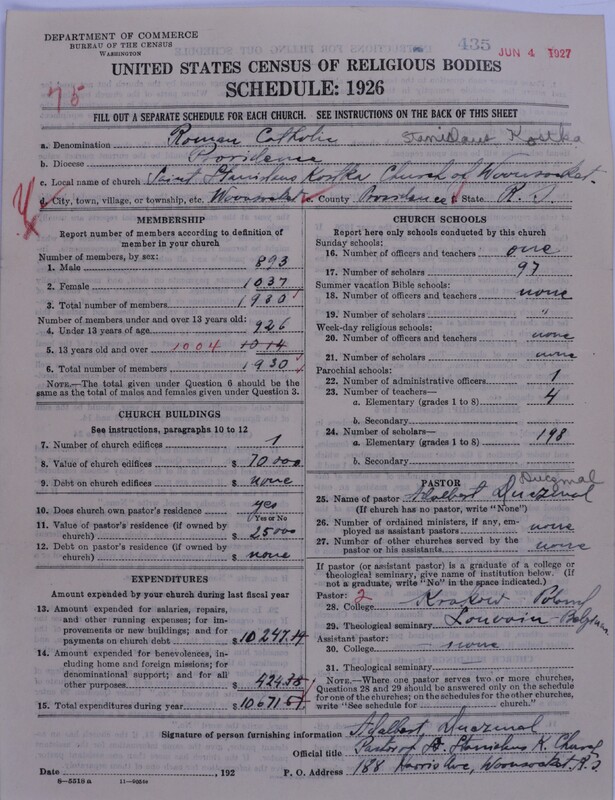 DEPARTMENT OF COMMERCE
BUREAU OF THE CENSUS
WASHINGTON
435 JUN 4 1927
UNITED STATES CENSUS OF RELIGIOUS BODIES
SCHEDULE: 1926
75
FILL OUT A SEPARATE SCHEDULE FOR EACH CHURCH. SEE INSTRUCTIONS ON THE BACK OF THIS SHEET
a. Denomination Roman Catholic Stanislaus Kostka
b. Diocese Providence
c. Local name of church Saint Stanislaus Kostka Church of Woonsocket
d. City, town, village, or township, etc. Woonsocket e. County Providence f. State R. I.
MEMBERSHIP
Report number of members according to definition of
member in your church
Number of members, by sex:
1. Male 893
2. Female 1037
3. Total number of members 1930
Number of members under and over 13 years old:
4. Under 13 years of age 926
5. 13 years old and over 1004 1014
6. Total number of members 1930
NOTE.—The total given under Question 6 should be the
same as the total of males and females given under Question 3.
CHURCH BUILDINGS
See instructions, paragraphs 10 to 12
7. Number of church edifices 1
8. Value of church edifices $ 70000
9. Debt on church edifices $ none
10. Does church own pastor's residence yes
(Yes or No)
11. Value of pastor's residence (if owned by
church) $ 25000
12. Debt on pastor's residence (if owned by
church) $ none
EXPENDITURES
Amount expended by your church during last fiscal year
13. Amount expended for salaries, repairs,
and other running expenses; for im-
provements or new buildings; and for
payments on church debt $ 10247.14
14. Amount expended for benevolences,
including home and foreign missions; for
denominational support; and for all
other purposes $
15. Total expenditures during year $
CHURCH SCHOOLS
Report here only schools conducted by this church
Sunday schools:
16. Number of officers and teachers one
17. Number of scholars 97
Summer vacation Bible schools:
18. Number of officers and teachers none
19. Number of scholars "
Week-day religious schools:
20. Number of officers and teachers none
21. Number of scholars none
Parochial schools:
22. Number of administrative officers 1
23. Number of teachers—
a. Elementary (grades 1 to 8) 4
b. Secondary
24. Number of scholars—
a. Elementary (grades 1 to 8) 198
b. Secondary
PASTOR
25. Name of pastor Adalbert
(If church has no pastor, write "None")
26. Number of ordained ministers, if any, em-
ployed as assistant pastors none
27. Number of other churches served by the
pastor or his assistants none
If pastor (or assistant pastor) is a graduate of a college or
theological seminary, give name of institution below. (If
not a graduate, write "No" in the space indicated.)
Pastor: 2
28. College Krakow Poland
29. Theological seminary Louvain Belgium
Assistant pastor:
30. College none
31. Theological seminary
NOTE.—Where one pastor serves two or more churches,
Questions 28 and 29 should be answered only on the schedule
for one of the churches; on the schedules for the other churches,
write "See schedule for church."
Signature of person furnishing information Adalbert
Official title Pastor of St. Stanislaus K. Church
Date , 192 P. O. Address 188 Harris Ave, Woonsocket R. I.
8—5518 a 11—9056